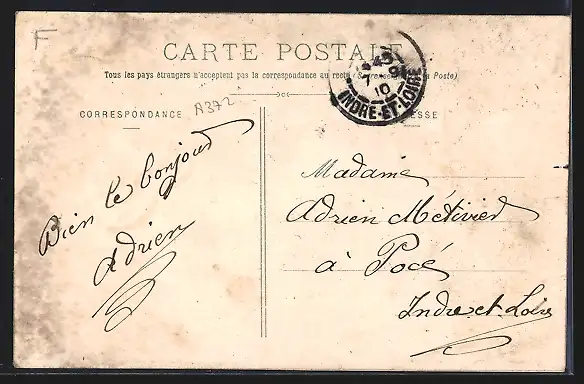 F
CARTE POSTALE
Tous les pays étrangers n'acceptent pas la correspondance au recto (Se rens à la Poste)
CORRESPONDANCE
A372
ESSE
7
10
INDRE-ET-LOIRE
Bien le bonjour
Adrien
Madame
Adrien Métivier
à Pocé
Indre et Loire